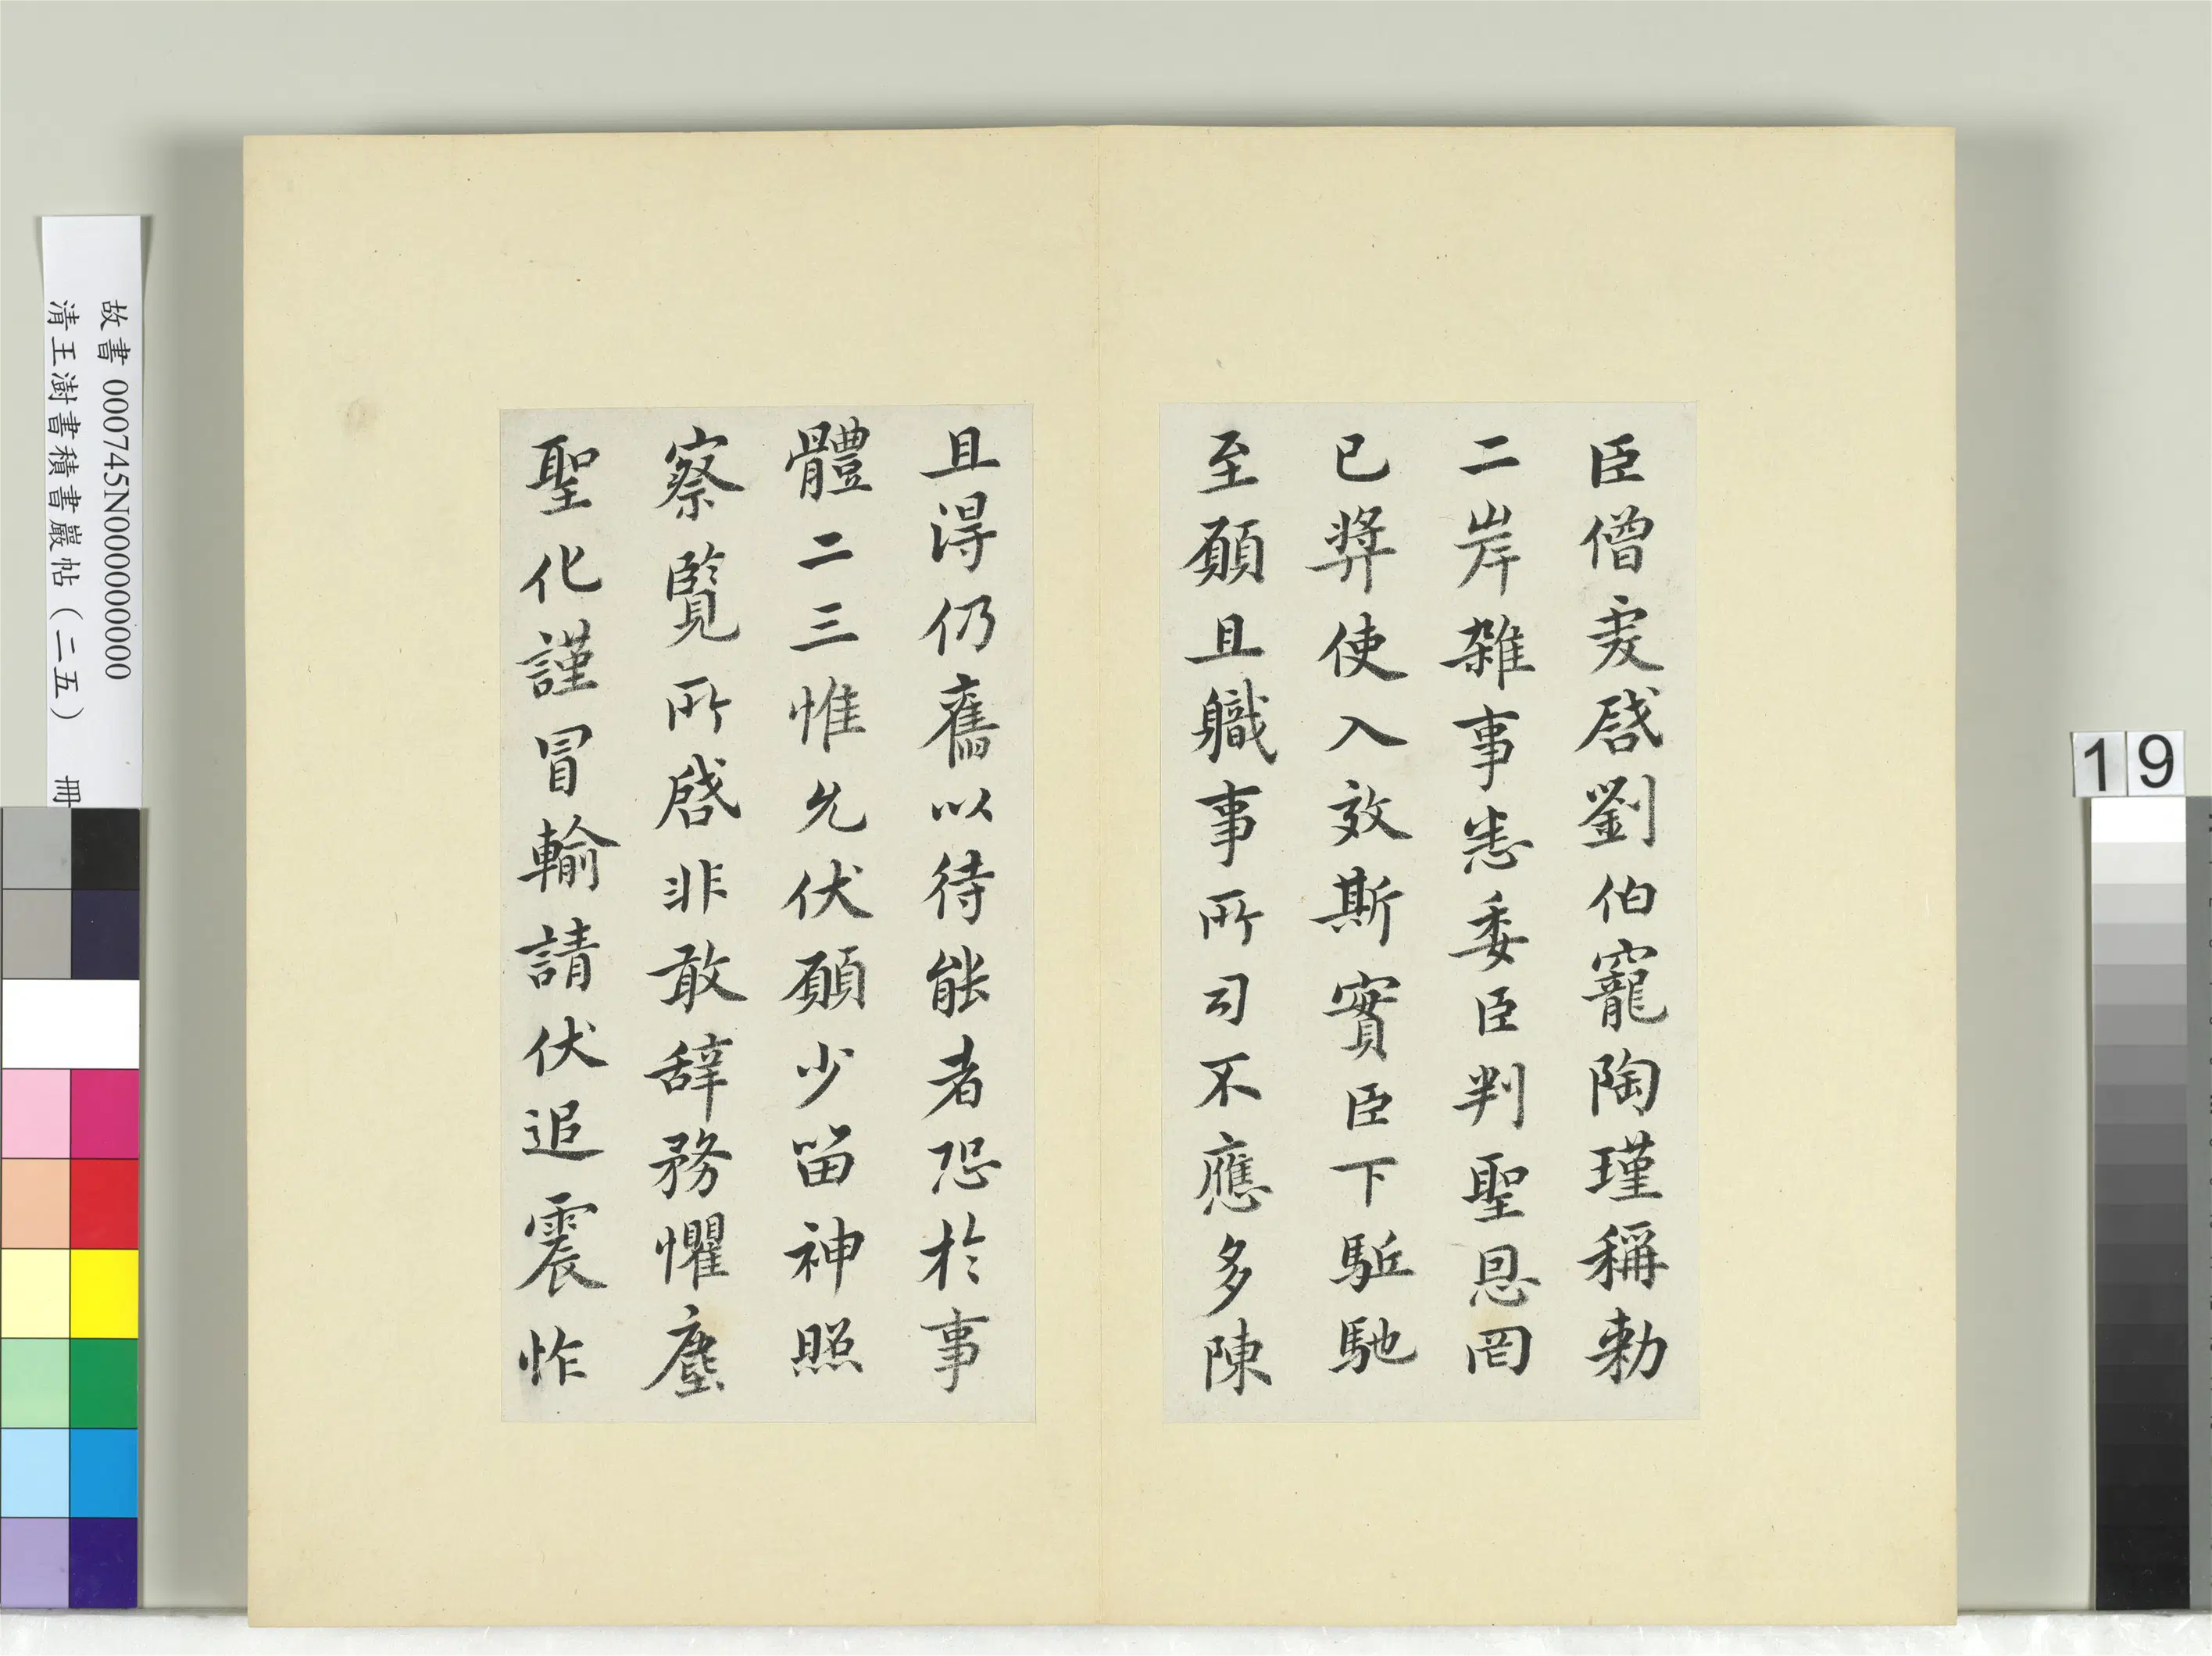 臣僧虔啓劉伯寵陶瑾稱勅
二岸雜事悉委臣判聖恩罔
已奬使入效斯實臣下駈馳
至願且職事所司不應多陳
且得仍舊以待能者恐於事
體二三惟允伏願少留神照
察覽所啓非敢辞務懼塵
聖化謹冐輸請伏追震怍
故書 000745N000000000
清王澍書積書巖帖（二五） 冊
19